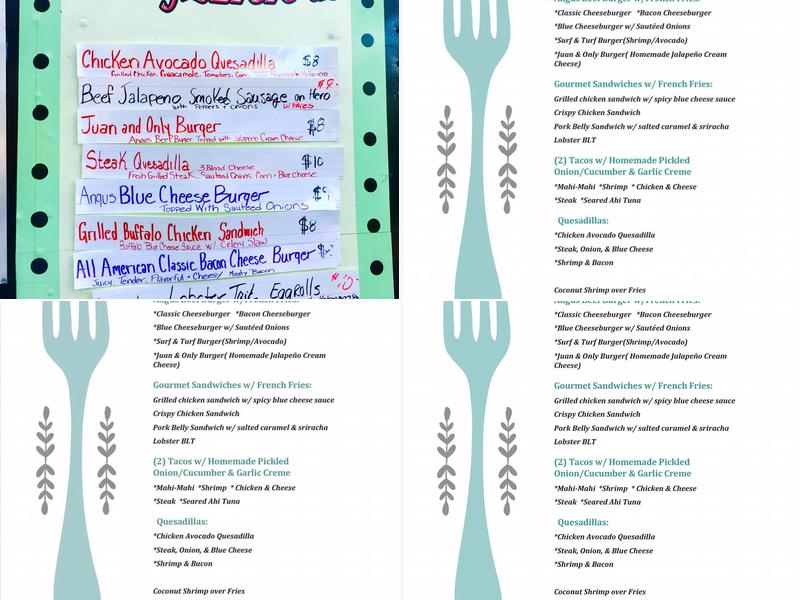 Chicken Avocado Quesadilla $8
Grilled Chicken, Guacamole, Tomatoes, Corn
Beef Jalapeno Smoked Sausage on Hero
with Peppers + Onions w/ FRIES
Juan and Only Burger $8
Angus Beef Burger Topped with Jalapeno Cream Cheese
Steak Quesadilla 3 Blend Cheese $10
Fresh Grilled Steak, Sauteed Onions, Corn + Blue Cheese
Angus Blue Cheese Burger
Topped With Sauteed Onions
Grilled Buffalo Chicken Sandwich $8
Buffalo Blue Cheese Sauce w/ Celery Slaw
All American Classic Bacon Cheese Burger
Juicy, Tender, Flavorful + Cheesy Meaty Bacon
Lobster Tail EggRolls
Angus Beef Burger w/French Fries:
*Classic Cheeseburger *Bacon Cheeseburger
*Blue Cheeseburger w/ Sautéed Onions
*Surf & Turf Burger(Shrimp/Avocado)
*Juan & Only Burger( Homemade Jalapeño Cream
Cheese)
Gourmet Sandwiches w/ French Fries:
Grilled chicken sandwich w/ spicy blue cheese sauce
Crispy Chicken Sandwich
Pork Belly Sandwich w/ salted caramel & sriracha
Lobster BLT
(2) Tacos w/ Homemade Pickled
Onion/Cucumber & Garlic Creme
*Mahi-Mahi *Shrimp * Chicken & Cheese
*Steak *Seared Ahi Tuna
Quesadillas:
*Chicken Avocado Quesadilla
*Steak, Onion, & Blue Cheese
*Shrimp & Bacon
Coconut Shrimp over Fries
Angus Beef Burger w/French Fries:
*Classic Cheeseburger *Bacon Cheeseburger
*Blue Cheeseburger w/ Sautéed Onions
*Surf & Turf Burger(Shrimp/Avocado)
*Juan & Only Burger( Homemade Jalapeño Cream
Cheese)
Gourmet Sandwiches w/ French Fries:
Grilled chicken sandwich w/ spicy blue cheese sauce
Crispy Chicken Sandwich
Pork Belly Sandwich w/ salted caramel & sriracha
Lobster BLT
(2) Tacos w/ Homemade Pickled
Onion/Cucumber & Garlic Creme
*Mahi-Mahi *Shrimp * Chicken & Cheese
*Steak *Seared Ahi Tuna
Quesadillas:
*Chicken Avocado Quesadilla
*Steak, Onion, & Blue Cheese
*Shrimp & Bacon
Coconut Shrimp over Fries
Angus Beef Burger w/French Fries:
*Classic Cheeseburger *Bacon Cheeseburger
*Blue Cheeseburger w/ Sautéed Onions
*Surf & Turf Burger(Shrimp/Avocado)
*Juan & Only Burger( Homemade Jalapeño Cream
Cheese)
Gourmet Sandwiches w/ French Fries:
Grilled chicken sandwich w/ spicy blue cheese sauce
Crispy Chicken Sandwich
Pork Belly Sandwich w/ salted caramel & sriracha
Lobster BLT
(2) Tacos w/ Homemade Pickled
Onion/Cucumber & Garlic Creme
*Mahi-Mahi *Shrimp * Chicken & Cheese
*Steak *Seared Ahi Tuna
Quesadillas:
*Chicken Avocado Quesadilla
*Steak, Onion, & Blue Cheese
*Shrimp & Bacon
Coconut Shrimp over Fries